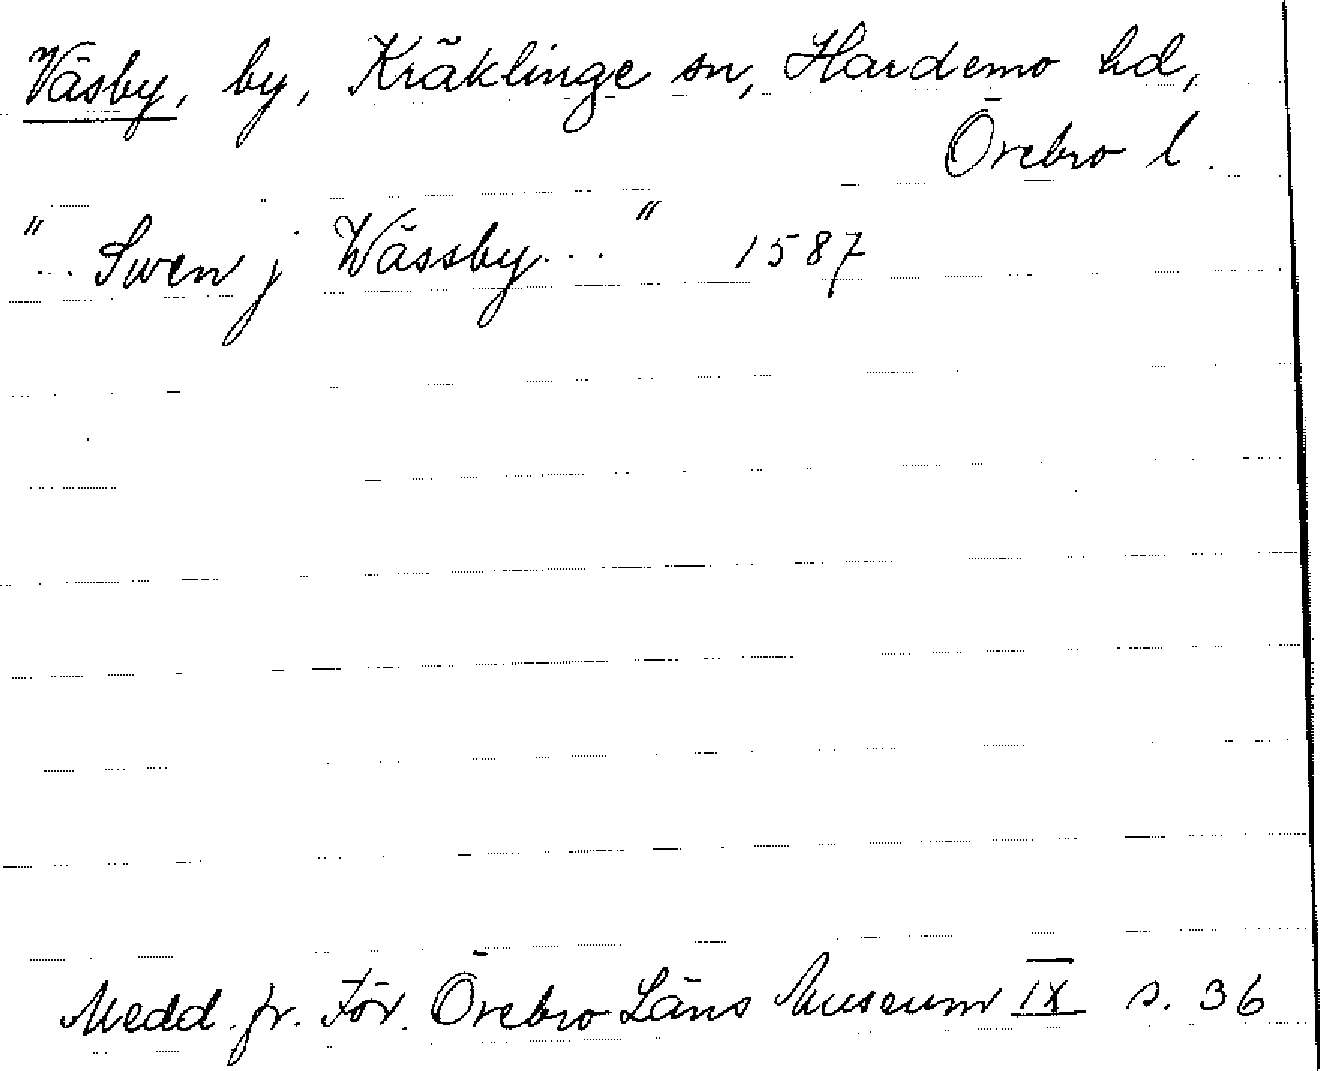 Väsby, by, Kräklinge sn, Hardemo hd,
Örebro l.
"... Swen j Wässby..." 1587
Medd. fr. För. Örebro Läns Museum IX s. 36